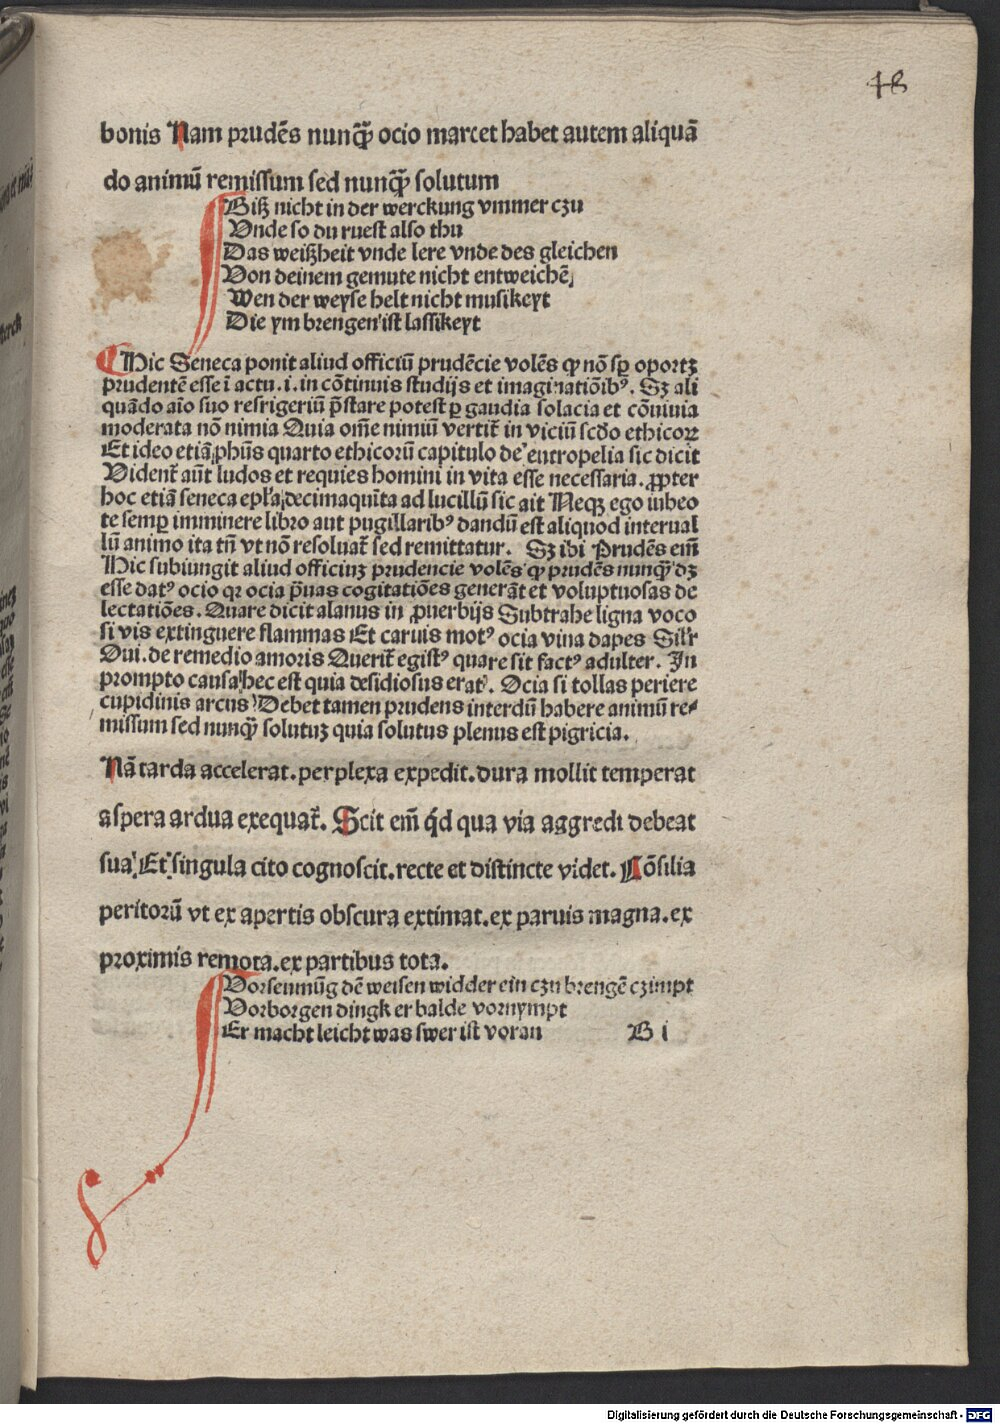 48
bonis Nam prudēs nunꝙ̃ ocio marcet habet autem aliquā
do animū remissum sed nunꝙ̃ solutum
Biß nicht in der werckung ymmer czu
Vnde so du ruest also thu
Das weißheit vnde lere vnde des gleichen
Von deinem gemute nicht entweichē
Wen der weyse helt nicht musikeyt
Die ym brengen ist lassikeyt
Hic Seneca ponit aliud officiū prudēcie volēs ꝙ nō sꝑ oportꝫ
prudentē esse ī actu .i. in cōtinuis studijs et imaginatiōibꝰ. Sꝫ ali
quādo aīo suo refrigeriū p̄stare potest ꝑ gaudia solacia et cōuiuia
moderata nō nimia Quia om̄e nimiū vertit᷑ in viciū scd̄o ethicoꝝ
Et ideo etiā ph̄us quarto ethicorū capitulo de eutropelia sic dicit
Vident᷑ aūt ludos et requies homini in vita esse necessaria. ꝓpter
hoc etiā seneca ep̄la decimaquīta ad lucillū sic ait Neqꝫ ego iubeo
te semꝑ imminere libro aut pugillaribꝰ dandū est aliquod interual
lū animo ita tn̄ vt nō resoluat᷑ sed remittatur. Sꝫ ibi Prudēs em̄
Hic subiungit aliud officiuꝫ prudencie volēs ꝙ prudēs nunꝙ̃ dꝫ
esse datꝰ ocio qꝛ ocia p̄uas cogitatiōes generāt et voluptuosas de
lectatiōes. Quare dicit alanus in ꝓuerbijs Subtrahe ligna voco
si vis extinguere flammas Et caruis motꝰ ocia vina dapes Sil̄r
Oui. de remedio amoris Querit᷑ egistꝰ quare sit factꝰ adulter. In
prompto causa hec est quia desidiosus erat. Ocia si tollas periere
cupidinis arcus Debet tamen prudens interdū habere animū re⸗
missum sed nunꝙ̃ solutuꝫ quia solutus plenus est pigricia.
Nā tarda accelerat. perplexa expedit. dura mollit temperat
aspera ardua exequat᷑. Scit em̄ qͥd qua via aggredi debeat
sua. Et singula cito cognoscit. recte et distincte videt. Cōsilia
peritorū vt ex apertis obscura extimat. ex paruis magna. ex
proximis remota. ex partibus tota.
Vorseumūg dē weisen widder ein czu brengē czimpt
Vorborgen dingk er balde vornympt
Er macht leicht was swer ist voran B i
Digitalisierung gefördert durch die Deutsche Forschungsgemeinschaft - DFG